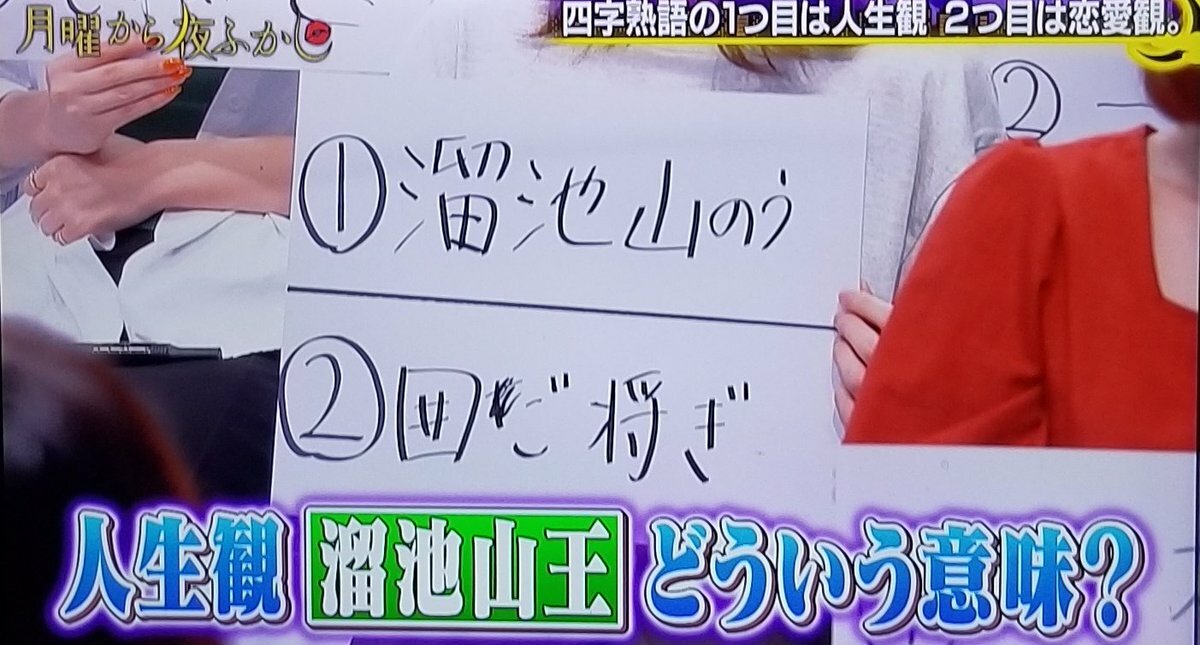 月曜から夜ふかし
四字熟語の1つ目は人生観 2つ目は恋愛観。
①溜池山のう
②囲ご将ぎ
②一
人生観 溜池山王 どういう意味?